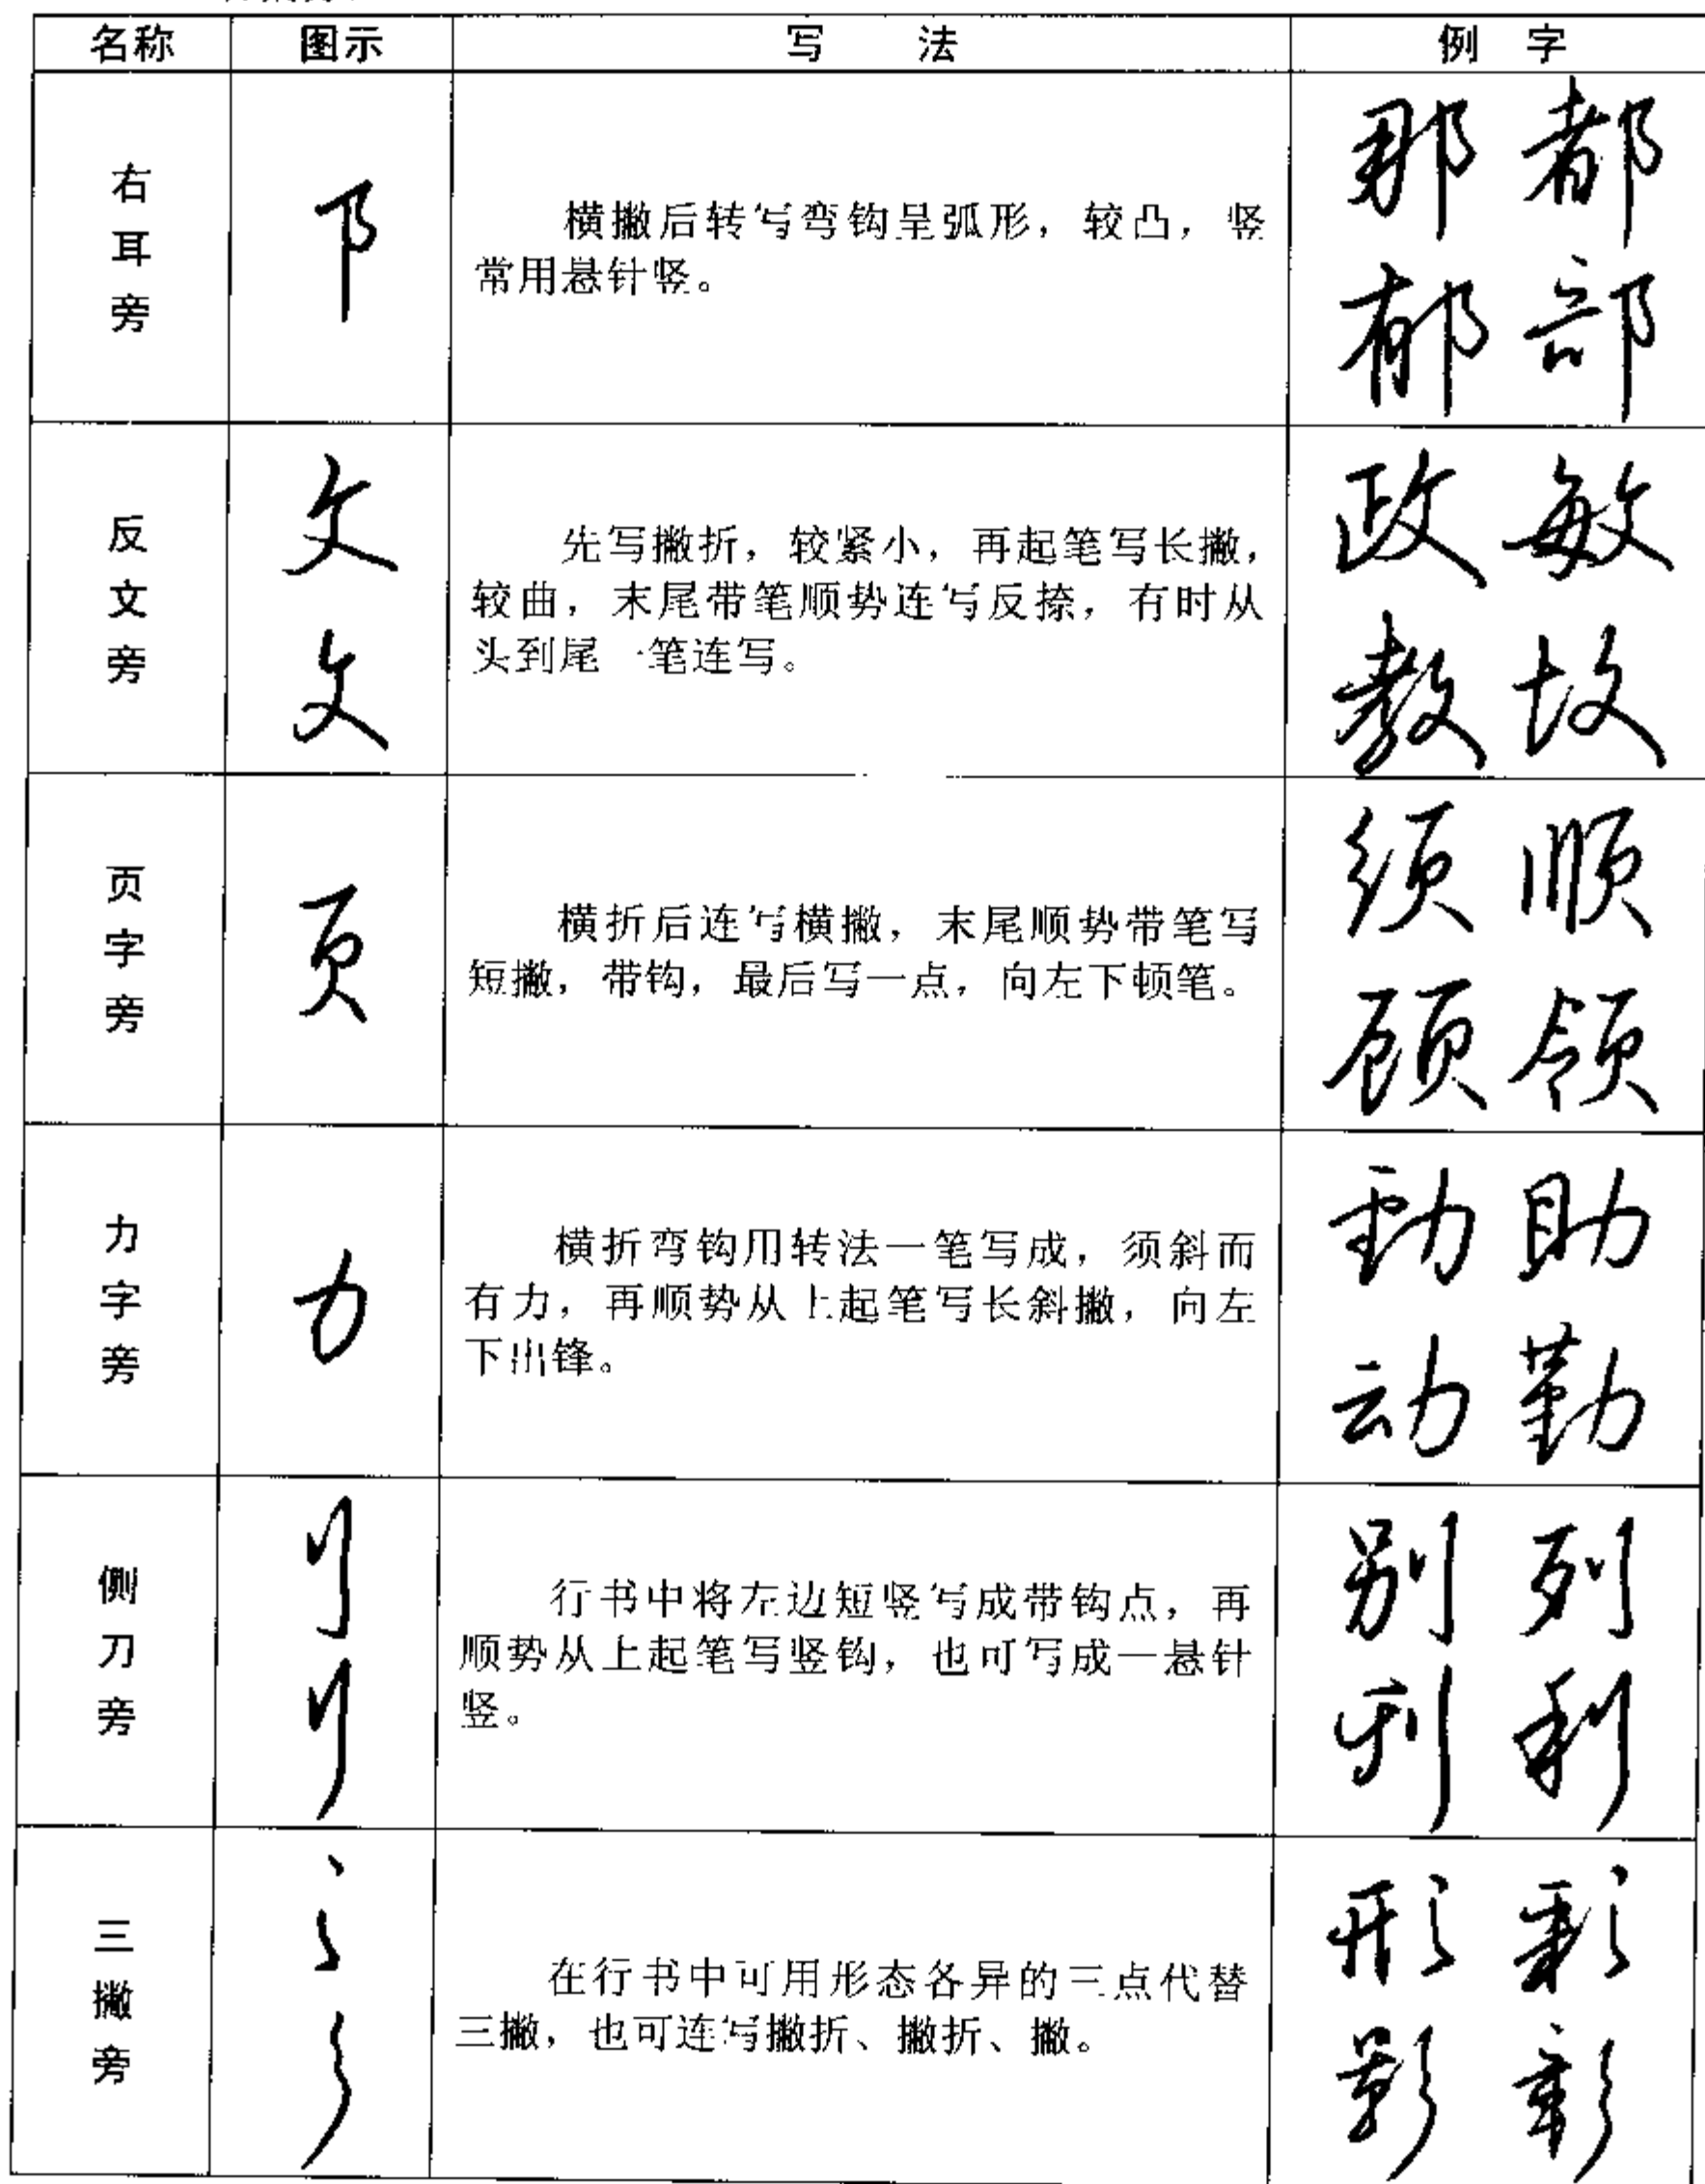 名称 图示 写 法 例 字
右耳旁 阝
横撇后转写弯钩呈弧形，较凸，竖
常用悬针竖。
那 都
郁 部
反文旁 攵
攵
先写撇折，较紧小，再起笔写长撇，
较曲，末尾带笔顺势连写反捺，有时从
头到尾一笔连写。
政 敏
敖 故
页字旁 页
横折后连写横撇，末尾顺势带笔写
短撇，带钩，最后写一点，向左下顿笔。
须 顺
顾 领
力字旁 力
横折弯钩用转法一笔写成，须斜而
有力，再顺势从上起笔写长斜撇，向左
下出锋。
劲 助
动 勤
侧刀旁 刂
刂
行书中将左边短竖写成带钩点，再
顺势从上起笔写竖钩，也可写成一悬针
竖。
别 列
刊 利
三撇旁 彡
彡
在行书中可用形态各异的三点代替
三撇，也可连写撇折、撇折、撇。
形 彩
影 彰